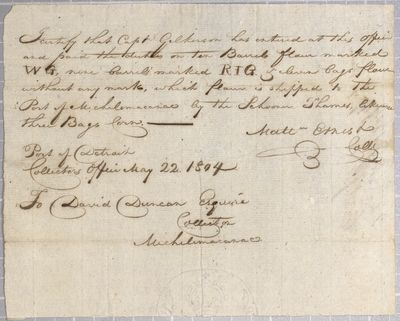 I certify that Capt Gilkerson has entered at this office
and paid the duties on ten Barrels flour marked
WG, nine barrels marked RIG & eleven bags flour
without any mark, which flour is shipped to the
Port of Michilimacinac by the Schooner Thames,
three Bags Corn
Matt Ernest
Colle
Port of Detroit
Collectors Office May 22. 1804
To David Duncan Esquire
Collector
Michilimacinac